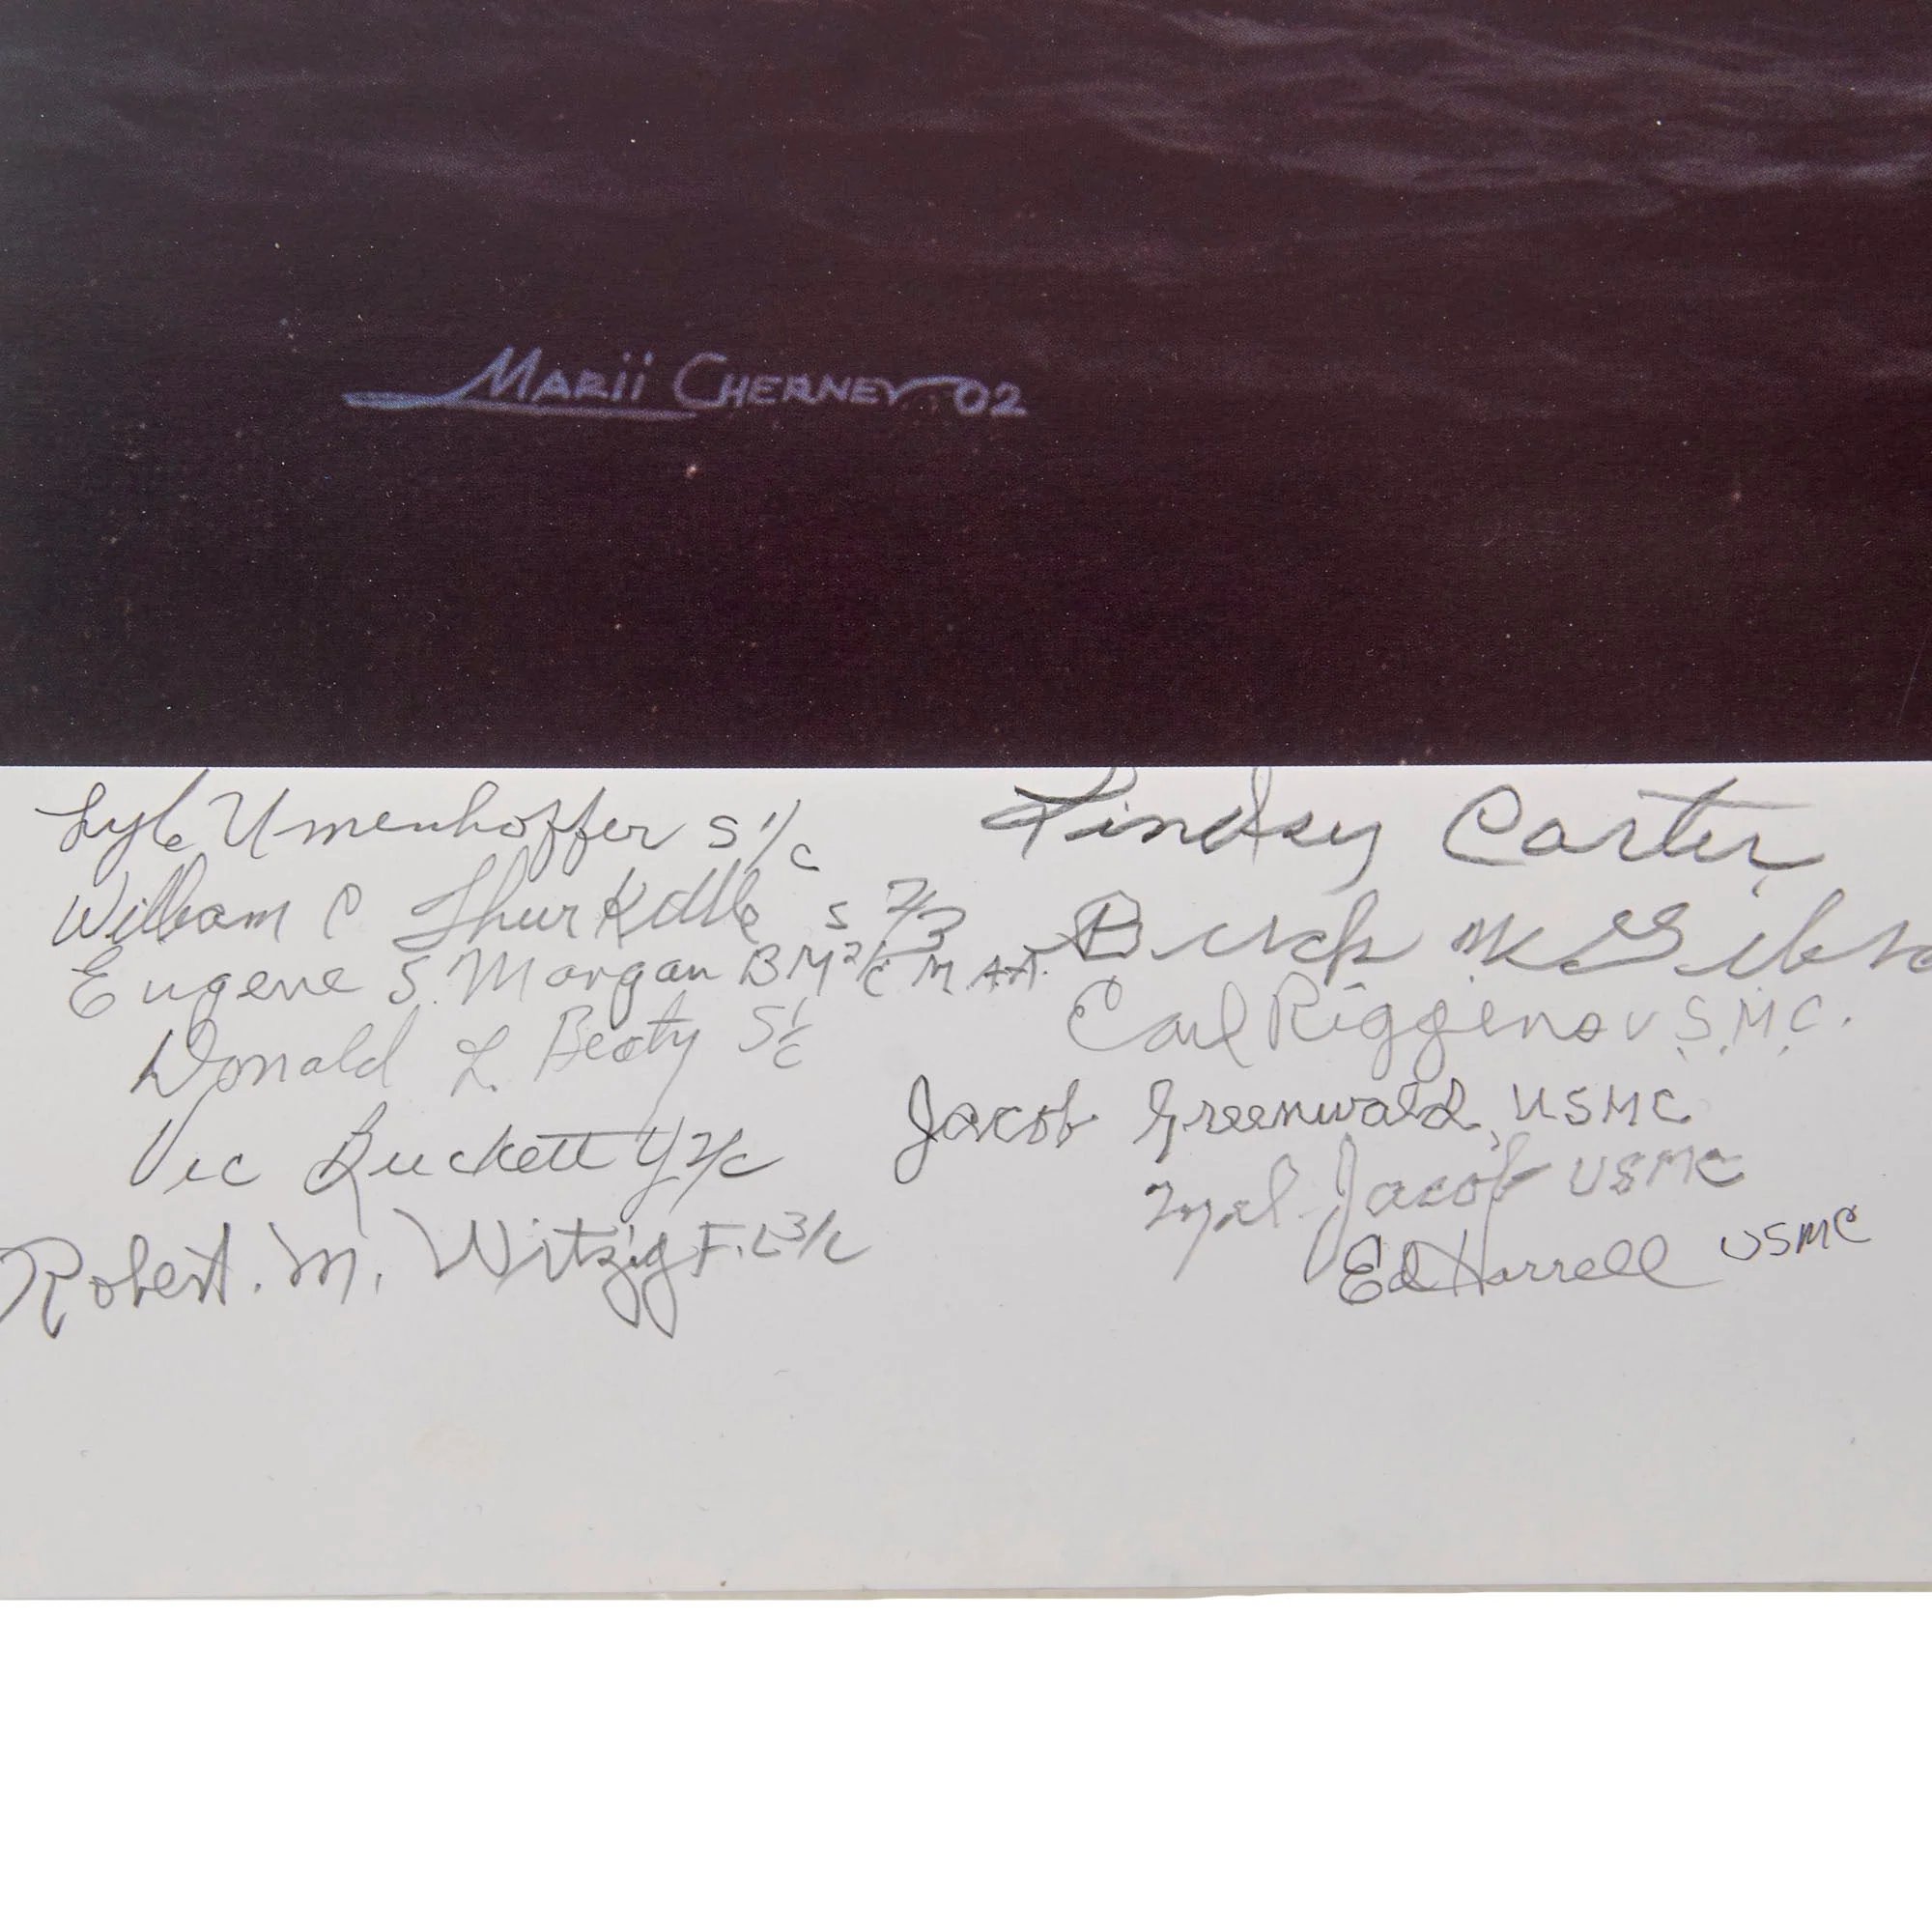 Marii Cherney 02
Lyle Umenhoffer S 1/c
William C Thurkettle S 2/3
Eugene S. Morgan BM2/c M.A.A.
Donald L. Beaty S 1/c
Vic Buckett Y 2/c
Robert. M. Witzig F.C 3/c
Lindsey Carter
Buck W
Carl Riggens U.S.M.C.
Jacob Greenwald, USMC
Mel Jacob USMC
Ed Harrell USMC